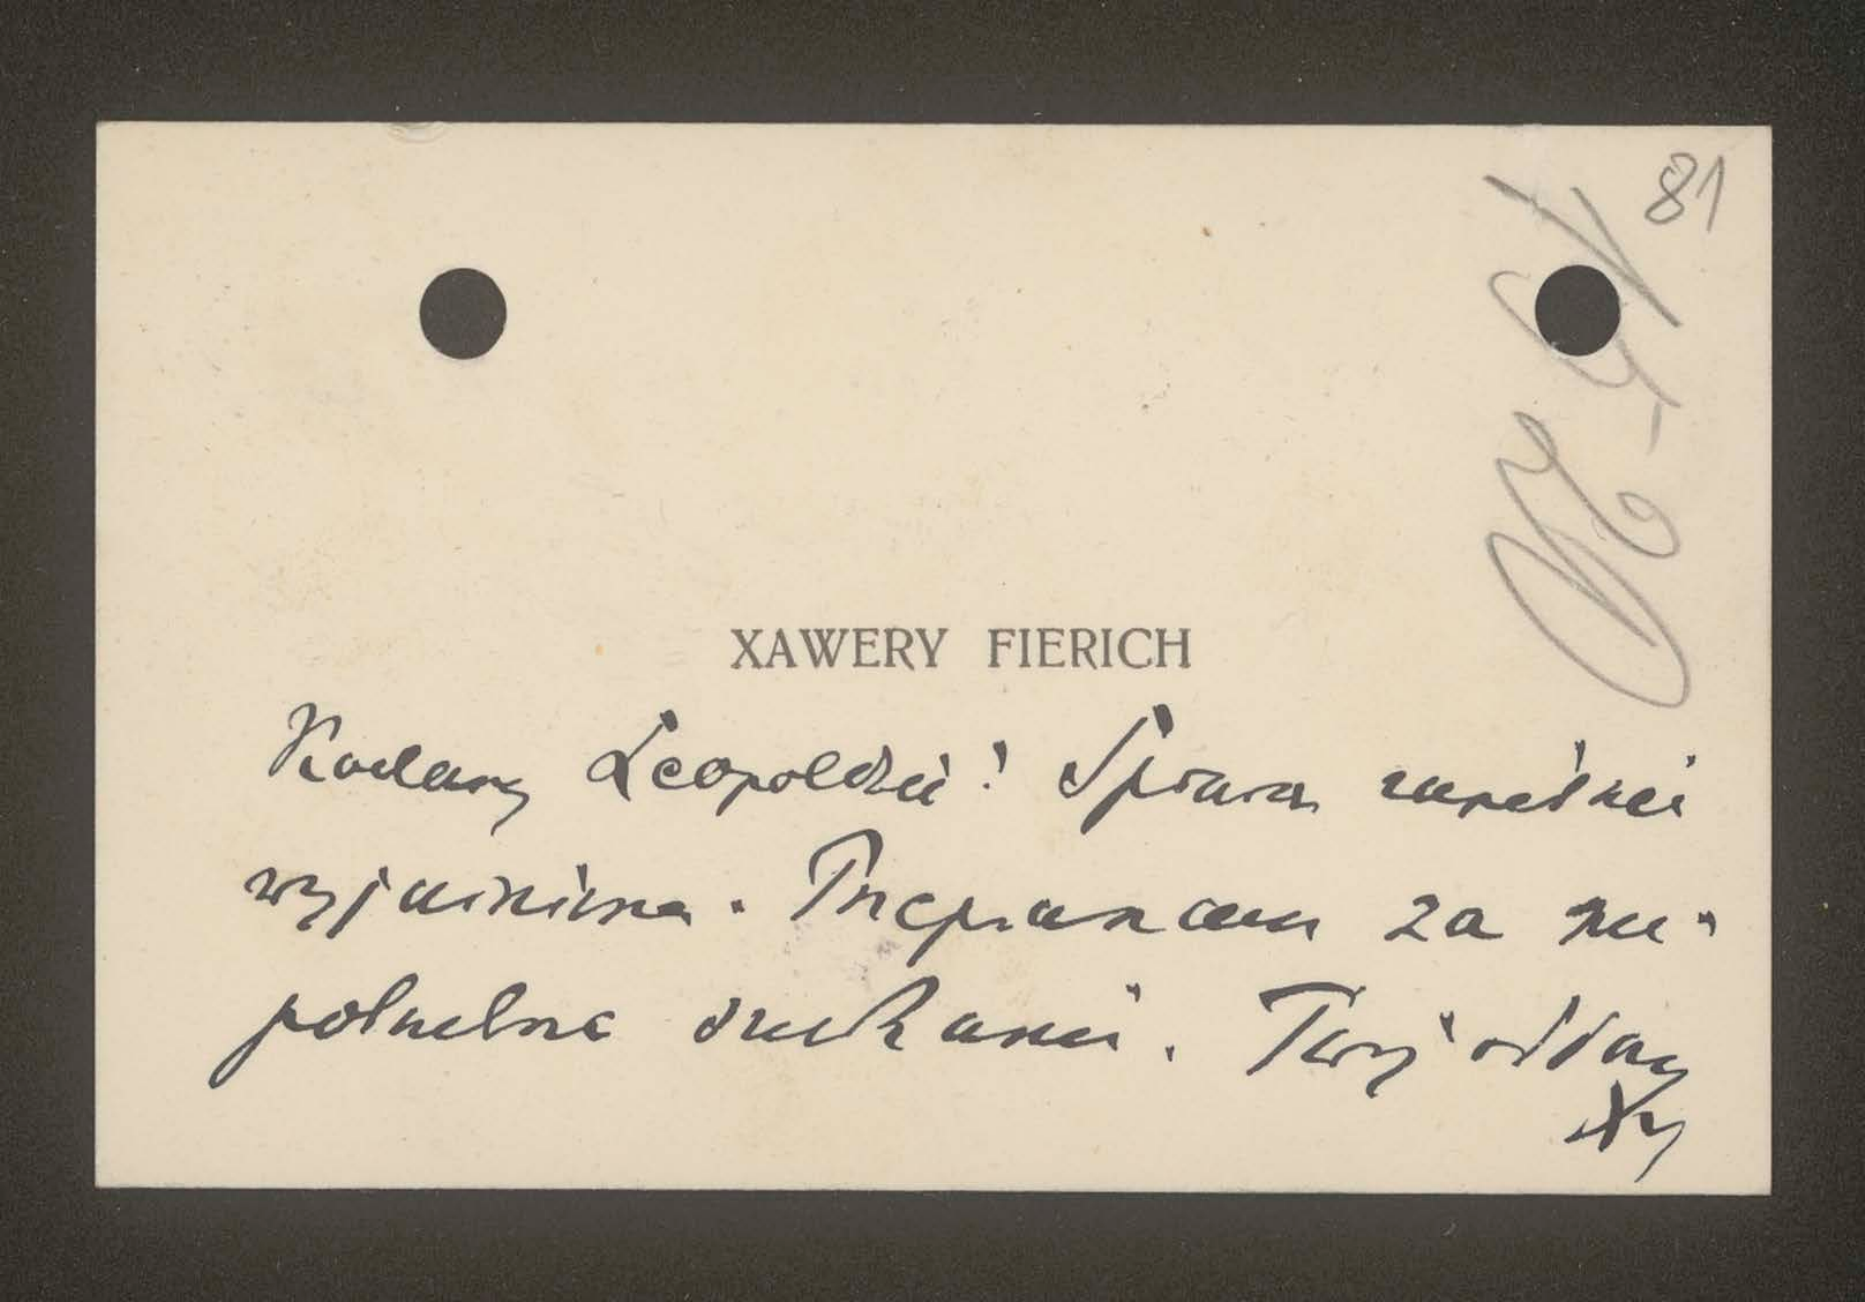 81
XAWERY FIERICH
Kochany Leopoldzie! Sprawa zupełnie
wyjaśniona. Przepraszam za nie-
potrzebne szukanie. Twój oddany
Xy